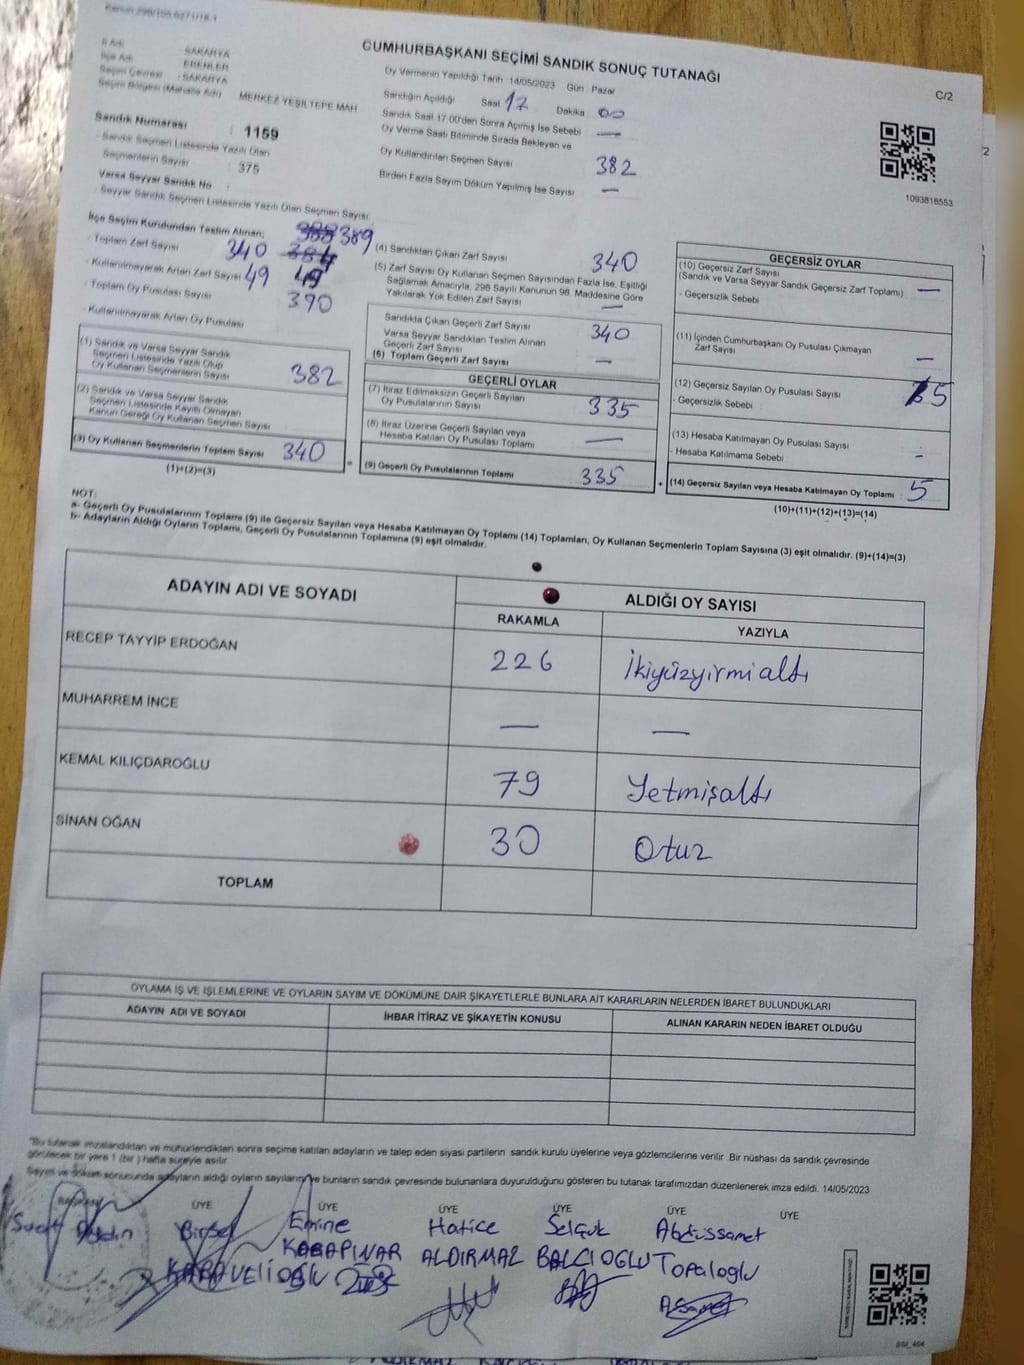 Kanun 298/105,6271/18-1
CUMHURBAŞKANI SEÇİMİ SANDIK SONUÇ TUTANAĞI
C/2
İl Adı : SAKARYA
İlçe Adı : ERENLER
Seçim Çevresi : SAKARYA
Seçim Bölgesi (Mahalle Adı) : MERKEZ YEŞİLTEPE MAH.
Sandık Numarası : 1159
- Sandık Seçmen Listesinde Yazılı Olan
Seçmenlerin Sayısı : 375
Varsa Seyyar Sandık No :
- Seyyar Sandık Seçmen Listesinde Yazılı Olan Seçmen Sayısı:
Oy Vermenin Yapıldığı Tarih : 14/05/2023 Gün : Pazar
Sandığın Açıldığı Saat 17 Dakika : 00
Sandık Saat 17:00'den Sonra Açılmış İse Sebebi —
Oy Verme Saati Bitiminde Sırada Bekleyen ve
Oy Kullandırılan Seçmen Sayısı 382
Birden Fazla Sayım Döküm Yapılmış İse Sayısı —
1093818553
İlçe Seçim Kurulundan Teslim Alınan;
388 389
- Toplam Zarf Sayısı 340 384
- Kullanılmayarak Artan Zarf Sayısı 49 49
- Toplam Oy Pusulası Sayısı 390
- Kullanılmayarak Artan Oy Pusulası
(1) Sandık ve Varsa Seyyar Sandık
Seçmen Listesinde Yazılı Olup
Oy Kullanan Seçmenlerin Sayısı 382
(2) Sandık ve Varsa Seyyar Sandık
Seçmen Listesinde Kayıtlı Olmayan
Kanun Gereği Oy Kullanan Seçmen Sayısı
(3) Oy Kullanan Seçmenlerin Toplam Sayısı 340
(1)+(2)=(3)
(4) Sandıktan Çıkan Zarf Sayısı 340
(5) Zarf Sayısı Oy Kullanan Seçmen Sayısından Fazla İse, Eşitliği
Sağlamak Amacıyla, 298 Sayılı Kanunun 98. Maddesine Göre
Yakılarak Yok Edilen Zarf Sayısı —
Sandıkla Çıkan Geçerli Zarf Sayısı 340
Varsa Seyyar Sandıktan Teslim Alınan
Geçerli Zarf Sayısı
(6) Toplam Geçerli Zarf Sayısı —
GEÇERLİ OYLAR
(7) İtiraz Edilmeksizin Geçerli Sayılan
Oy Pusulalarının Sayısı 335
(8) İtiraz Üzerine Geçerli Sayılan veya
Hesaba Katılan Oy Pusulası Toplamı —
(9) Geçerli Oy Pusulalarının Toplamı 335
GEÇERSİZ OYLAR
(10) Geçersiz Zarf Sayısı
(Sandık ve Varsa Seyyar Sandık Geçersiz Zarf Toplamı) —
- Geçersizlik Sebebi
(11) İçinden Cumhurbaşkanı Oy Pusulası Çıkmayan
Zarf Sayısı —
(12) Geçersiz Sayılan Oy Pusulası Sayısı 5
- Geçersizlik Sebebi
(13) Hesaba Katılmayan Oy Pusulası Sayısı
- Hesaba Katılmama Sebebi -
(14) Geçersiz Sayılan veya Hesaba Katılmayan Oy Toplamı 5
(10)+(11)+(12)+(13)=(14)
NOT:
a- Geçerli Oy Pusulalarının Toplamı (9) ile Geçersiz Sayılan veya Hesaba Katılmayan Oy Toplamı (14) Toplamları, Oy Kullanan Seçmenlerin Toplam Sayısına (3) eşit olmalıdır. (9)+(14)=(3)
b- Adayların Aldığı Oyların Toplamı, Geçerli Oy Pusulalarının Toplamına (9) eşit olmalıdır.
ADAYIN ADI VE SOYADI
ALDIĞI OY SAYISI
RAKAMLA YAZIYLA
RECEP TAYYİP ERDOĞAN 226 İkiyüzyirmialtı
MUHARREM İNCE — —
KEMAL KILIÇDAROĞLU 79 Yetmişaltı
SİNAN OĞAN 30 Otuz
TOPLAM
OYLAMA İŞ VE İŞLEMLERİNE VE OYLARIN SAYIM VE DÖKÜMÜNE DAİR ŞİKAYETLERLE BUNLARA AİT KARARLARIN NELERDEN İBARET BULUNDUKLARI
ADAYIN ADI VE SOYADI İHBAR İTİRAZ VE ŞİKAYETİN KONUSU ALINAN KARARIN NEDEN İBARET OLDUĞU
"Bu tutanak imzalandıktan ve mühürlendikten sonra seçime katılan adayların ve talep eden siyasi partilerin sandık kurulu üyelerine veya gözlemcilerine verilir. Bir nüshası da sandık çevresinde
görülecek bir yere 1 (bir) hafta süreyle asılır.
Sayım ve döküm sonucunda adayların aldığı oyların sayılarını ve bunların sandık çevresinde bulunanlara duyurulduğunu gösteren bu tutanak tarafımızdan düzenlenerek imza edildi. 14/05/2023
BAŞKAN ÜYE ÜYE ÜYE ÜYE ÜYE ÜYE
Suat Aydın Birsel Emine Hatice Selçuk Abdüssamet
KARAVELİOĞLU KABAPINAR ALDIRMAZ BALCIOGLU Topaloglu